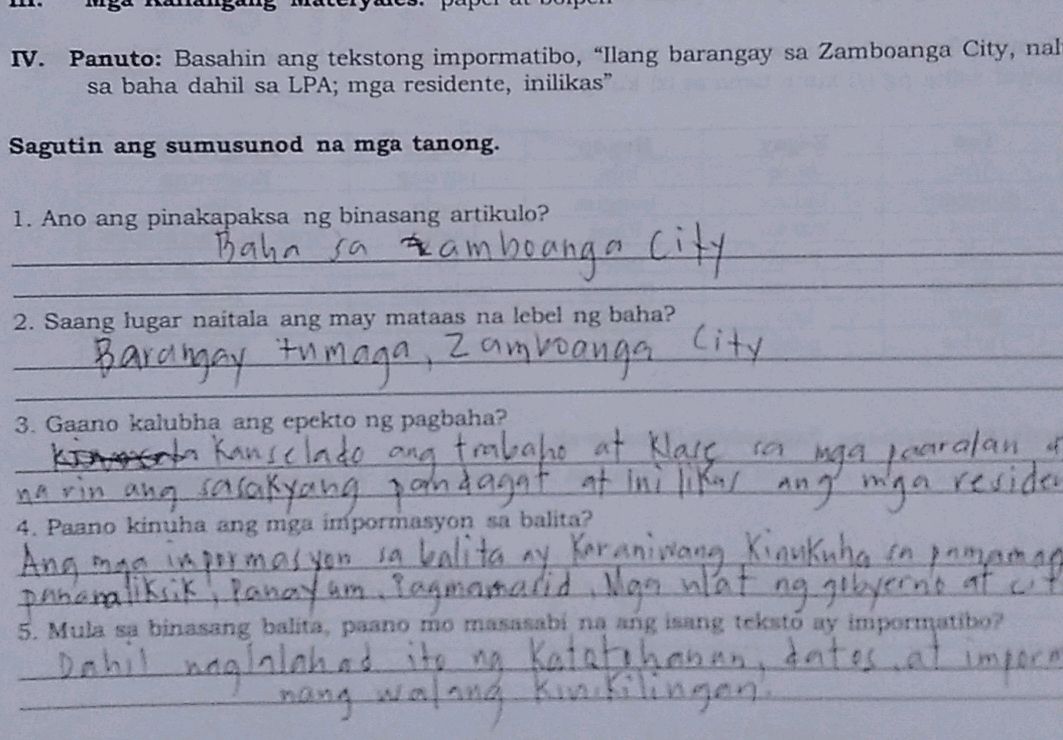 III. Mga Kailangang Materyales: papel at bolpen
IV. Panuto: Basahin ang tekstong impormatibo, “Ilang barangay sa Zamboanga City, nal
sa baha dahil sa LPA; mga residente, inilikas”
Sagutin ang sumusunod na mga tanong.
1. Ano ang pinakapaksa ng binasang artikulo?
Baha sa zamboanga City
2. Saang lugar naitala ang may mataas na lebel ng baha?
Barangay tumaga, Zamboanga City
3. Gaano kalubha ang epekto ng pagbaha?
Kanselado ang trabaho at klase sa mga paaralan
na rin ang sasakyang pandagat at inilikas ang mga reside
4. Paano kinuha ang mga impormasyon sa balita?
Ang mga impormasyon sa balita ay Karaniwang Kinukuha sa pamamag
pananaliksik, Panayam, Pagmamasid, Mga ulat ng gobyerno at
5. Mula sa binasang balita, paano mo masasabi na ang isang teksto ay impormatibo?
Dahil naglalahad ito ng Katotohanan, datos, at imporm
nang walang Kinikilingan.